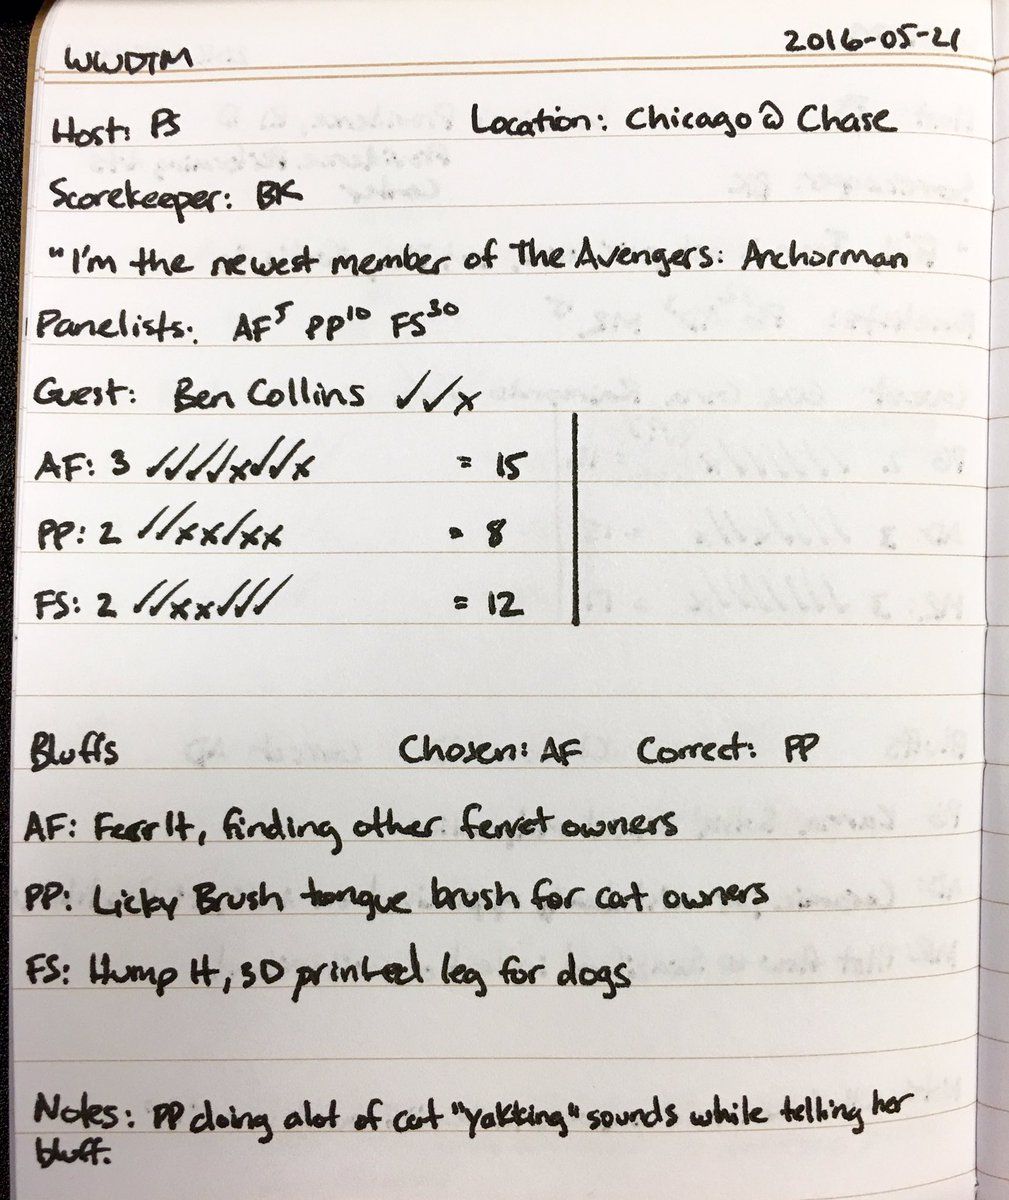 WWDTM 2016-05-21
Host: PS Location: Chicago @ Chase
Scorekeeper: BK
"I'm the newest member of The Avengers: Anchorman
Panelists: AF⁵ PP¹⁰ FS³⁰
Guest: Ben Collins ✓✓x
AF: 3 ✓✓✓✓x✓✓✓x = 15
PP: 2 ✓✓xx✓xx = 8
FS: 2 ✓✓xx✓✓✓ = 12
Bluffs Chosen: AF Correct: PP
AF: Ferr It, finding other ferret owners
PP: Licky Brush tongue brush for cat owners
FS: Hump It, 3D printed leg for dogs
Notes: PP doing alot of cat "yakking" sounds while telling her
bluff.